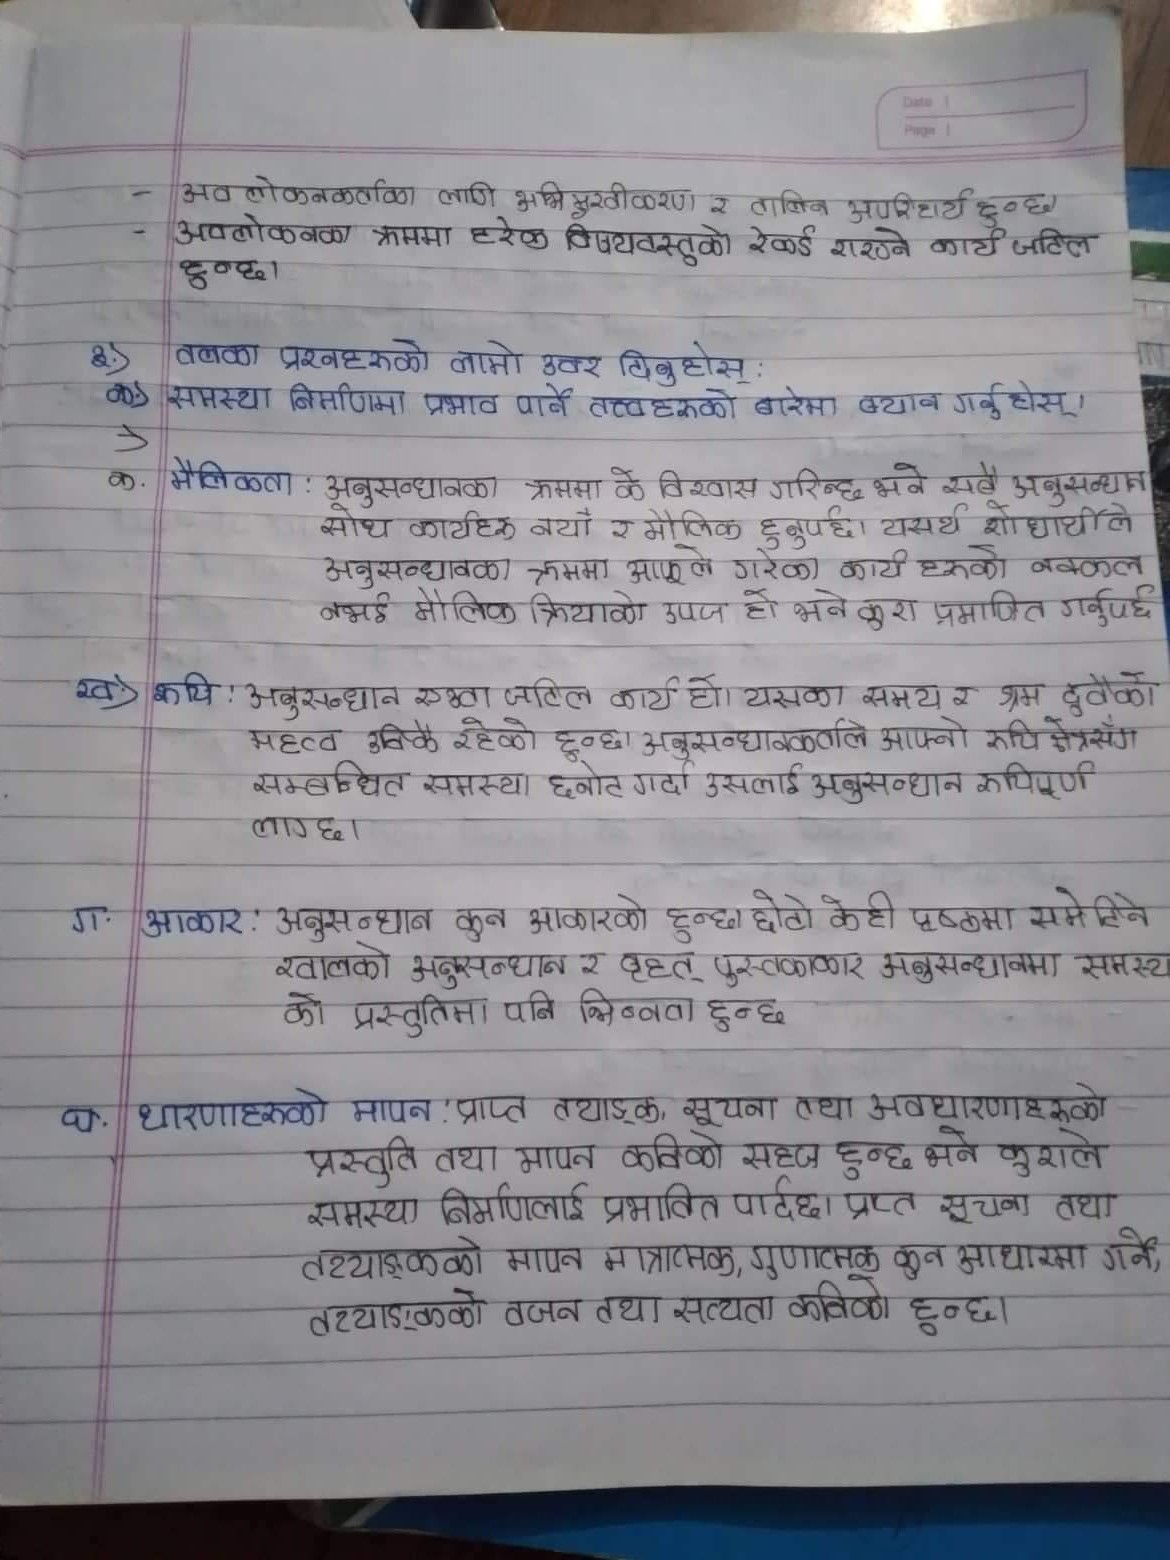 Date
Page
- अवलोकनकर्ताका लागि अभिमुखीकरण र तालिम अपरिहार्य हुन्छ।
- अवलोकनका क्रममा हरेक विषयवस्तुको रेकर्ड राख्ने कार्य जटिल
हुन्छ।
३.) तलका प्रश्नहरुको लामो उत्तर दिनुहोस् :
क) समस्या निर्माणमा प्रभाव पार्ने तत्त्वहरुको बारेमा बयान गर्नुहोस्।
→
क. मौलिकता : अनुसन्धानका क्रममा के विश्वास गरिन्छ भने सबै अनुसन्धान
सोध कार्यहरु नयाँ र मौलिक हुनुपर्छ। यसर्थ शोधार्थीले
अनुसन्धानका क्रममा आफूले गरेका कार्य हरुको नक्कल
नभई मौलिक क्रियाको उपज हो भने कुरा प्रमाणित गर्नुपर्छ
ख) रूचि : अनुसन्धान रुखा जटिल कार्य हो। यसका समय र श्रम दुवैको
महत्व उत्तिकै रहेको हुन्छ। अनुसन्धानकर्ताले आफ्नो रूचि क्षेत्रसँग
सम्बन्धित समस्या छनोट गर्दा उसलाई अनुसन्धान रूचिपूर्ण
लाग्छ।
ग. आकार : अनुसन्धान कुन आकारको हुन्छ। छोटो केही पृष्ठमा समेटिने
खालको अनुसन्धान र वृहत् पुस्तकाकार अनुसन्धानमा समस्य
को प्रस्तुतिमा पनि भिन्नता हुन्छ
घ. धारणाहरुको मापन : प्राप्त तथाङ्क, सूचना तथा अवधारणाहरुको
प्रस्तुति तथा मापन कत्तिको सहज हुन्छ भने कुराले
समस्या निर्माणलाई प्रभावित पार्दछ। प्रप्त सूचना तथा
तथ्याङ्कको मापन मात्रात्मक, गुणात्मक कुन आधारमा गर्ने,
तथ्याङ्कको वजन तथा सत्यता कत्तिको हुन्छ।